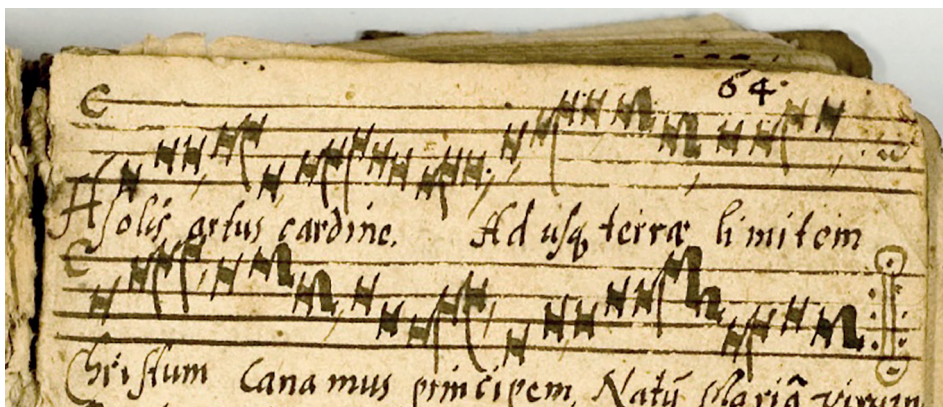 64.
A solis ortus cardine. Ad usq₃ terræ limitem
Christum Canamus principem, Natū Mariâ virgin